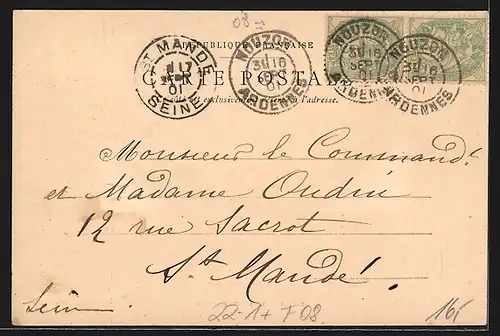 08
RÉPUBLIQUE FRANÇAISE
CARTE POSTALE
exclusivement l'adresse.
ST MANDÉ
17
01
SEINE
NOUZON
16
SEPT
01
ARDENNES
NOUZON
16
SEPT
ARDENNES
NOUZON
16
SEPT
01
ARDENNES
Monsieur le Commandt
et Madame Oudin
12 rue Sacrot
St Mandé!
Seine
22-1+ F08